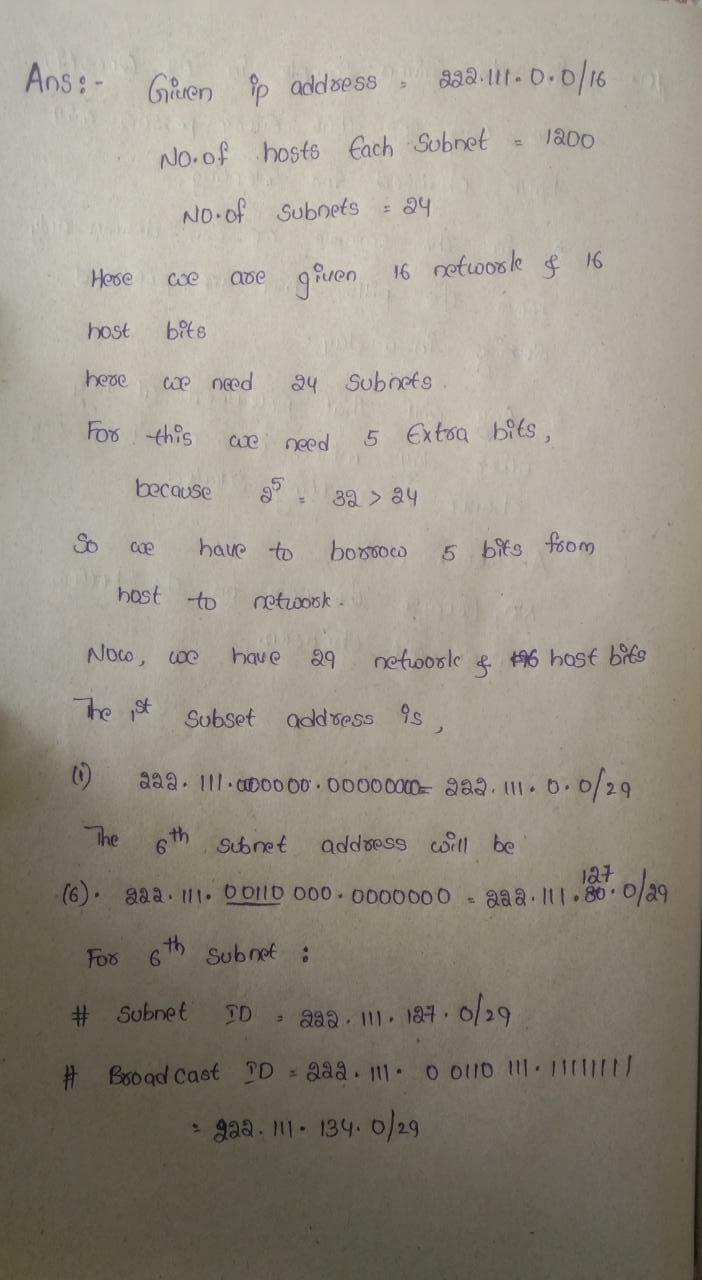 Ans:- Given ip address = 222.111.0.0/16
No.of hosts Each Subnet = 1200
No.of Subnets = 24
Here we are given 16 network & 16
host bits
here we need 24 Subnets.
For this we need 5 Extra bits,
because 2⁵ = 32 > 24
So we have to borrow 5 bits from
host to network.
Now, we have 29 network & host bits
The 1st Subset address is,
(i) 222.111.000000.0000000= 222.111.0.0/29
The 6th subnet address will be
(6). 222.111.00110 000.0000000 = 222.111.80.0/29
127
For 6th Subnet :
# Subnet ID = 222.111.127.0/29
# Broadcast ID = 222.111. 0 0110 111.11111111
= 222.111.134.0/29